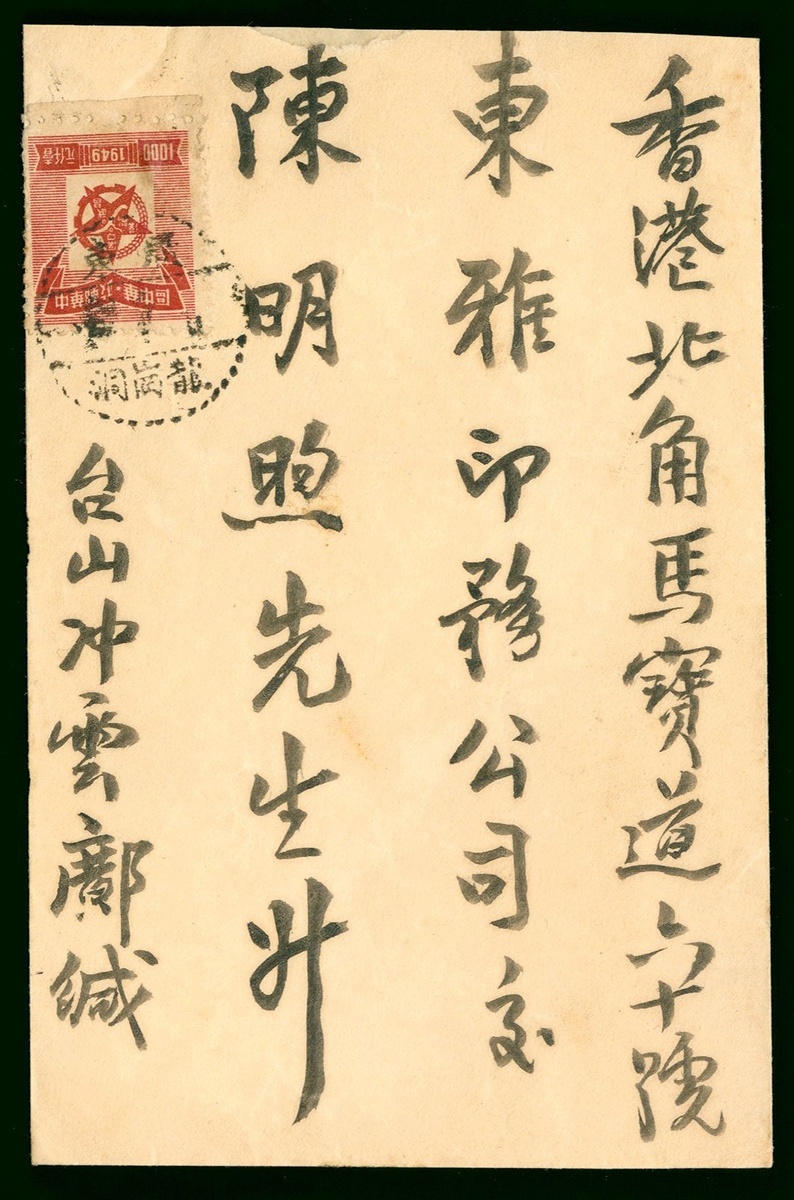 香港北角馬寶道六十號
東雅印務公司交
陳明煦先生升
台山冲雲鄺緘
1000 1949 元仟壹
區中華·政郵華中
龍崗洞